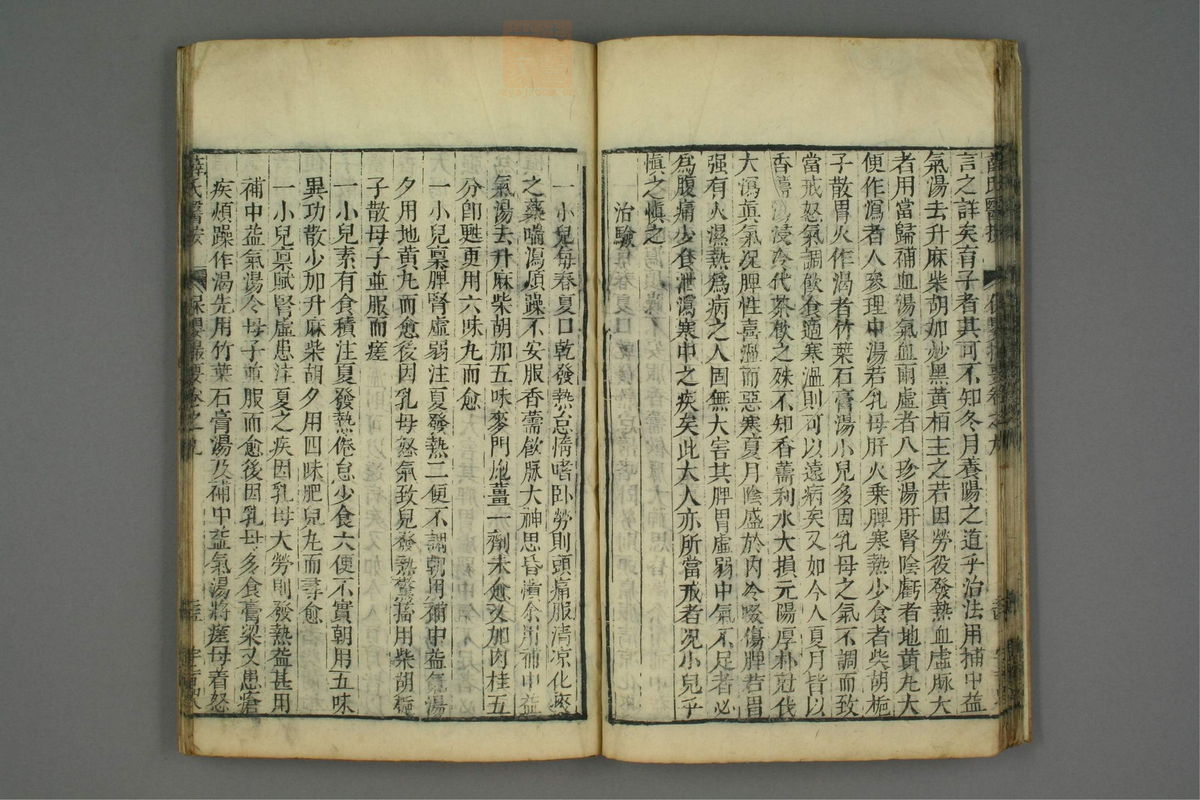 言之詳矣有子者其可不知冬月養陽之道乎治法用補中益
氣湯去升麻柴胡加炒黑黃栢主之若因勞役發熱血虛脉大
者用當歸補血湯氣血兩虛者八珍湯肝腎陰虧者地黃丸大
便作瀉者人參理中湯若乳母肝火乗脾寒熱少食者柴胡梔
子散胃火作渴者竹葉石膏湯小兒多因乳母之氣不調而致
當戒怒氣調飲食適寒溫則可以遠病矣又如今人夏月皆以
香薷湯浸冷代茶飲之殊不知香薷利水大損元陽厚朴尅伐
大瀉眞氣况脾性喜溫而惡寒夏月陰盛於内冷啜傷脾若胃
强有火濕熱爲病之人固無大害其脾胃虛弱中氣不足者必
爲腹痛少食泄瀉寒中之疾矣此大人亦所當戒者况小兒乎
愼之愼之
治驗
一小兒毎春夏口乾發熱怠惰嗜卧勞則頭痛服清凉化痰
之藥喘瀉煩躁不安服香薷飲脉大神思昏憒余用補中益
氣湯去升麻柴胡加五味麥門炮薑一劑未愈又加肉桂五
分卽甦更用六味丸而愈
一小兒稟脾腎虛弱注夏發熱二便不調朝用補中益氣湯
夕用地黃丸而愈後因乳母怒氣致兒發熱驚搐用柴胡梔
子散母子並服而瘥
一小兒素有食積注夏發熱倦怠少食大便不實朝用五味
異功散少加升麻柴胡夕用四味肥兒丸而尋愈
一小兒稟賦腎虛患注夏之疾因乳母大勞則發熱益甚用
補中益氣湯令母子並服而愈後因乳母多食膏粱又患瘡
疾煩躁作渴先用竹葉石膏湯及補中益氣湯將瘥母着怒
薛氏醫按 保嬰撮要卷之九